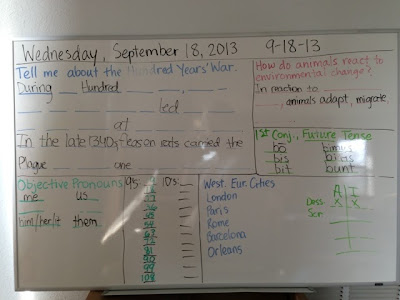 Wednesday, September 18, 2013 9-18-13
Tell me about the Hundred Years' War.
During Hundred
led
at
In the late 1340s fleas on rats carried the
Plague one
How do animals react to
environmental change?
In reaction to
, animals adapt, migrate,
1st Conj., Future Tense
bo bimus
bis bitis
bit bunt
Objective Pronouns
me us
him/her/it them
9s: 10s:
108
West. Eur. Cities
London
Paris
Rome
Barcelona
Orleans
A I
Dass. X X
Scr.